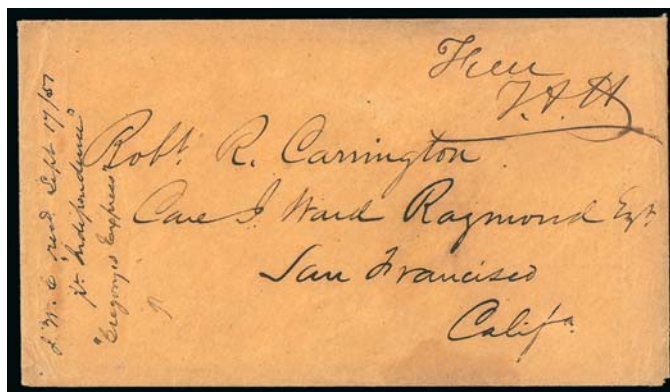 Free
T.A.H
Robt. R. Carrington
Care J Ward Raymond Esqr
San Francisco
Califa.
J. W. C recd Sept 17/51
pr Independence
"Gregory's Express"